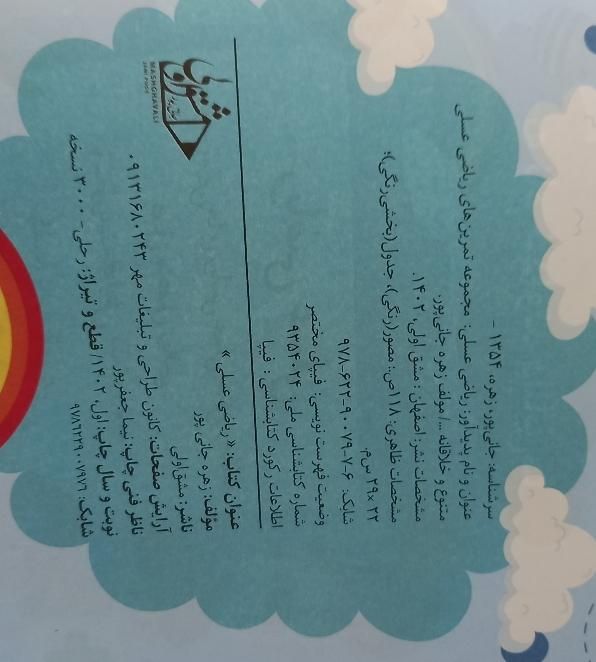 سرشناسه: جانی‌پور، زهره، ۱۳۵۴ -
عنوان و نام پدیدآور: ریاضی عسلی: مجموعه تمرین‌های ریاضی عسلی
متنوع و خلاقانه .../ مولف زهره جانی‌پور.
مشخصات نشر: اصفهان: مشق اولی، ۱۴۰۲.
مشخصات ظاهری: ۱۱۸ص.: مصور(رنگی)، جدول(بخشی‌رنگی)؛
۲۲ × ۲۹ س‌م.
شابک: ۶-۷-۹۰۰۷۹-۶۲۲-۹۷۸
وضعیت فهرست نویسی: فیپای مختصر
شماره کتابشناسی ملی: ۹۳۵۴۰۲۴
اطلاعات رکورد کتابشناسی : فیپا
عنوان کتاب: « ریاضی عسلی »
مؤلف: زهره جانی پور
ناشر: مشق‌اولی
آرایش صفحات: کانون طراحی و تبلیغات مهر ۰۹۱۳۱۶۸۰۲۴۳
ناظر فنی چاپ: نیما جعفرپور
نوبت و سال چاپ: اول، ۱۴۰۲/ قطع و تیراژ: رحلی- ۳۰۰۰ نسخه
شابک: ۹۷۸۶۲۲۹۰۰۷۹۷۶
مشق‌اولی
MASHGHAVALI